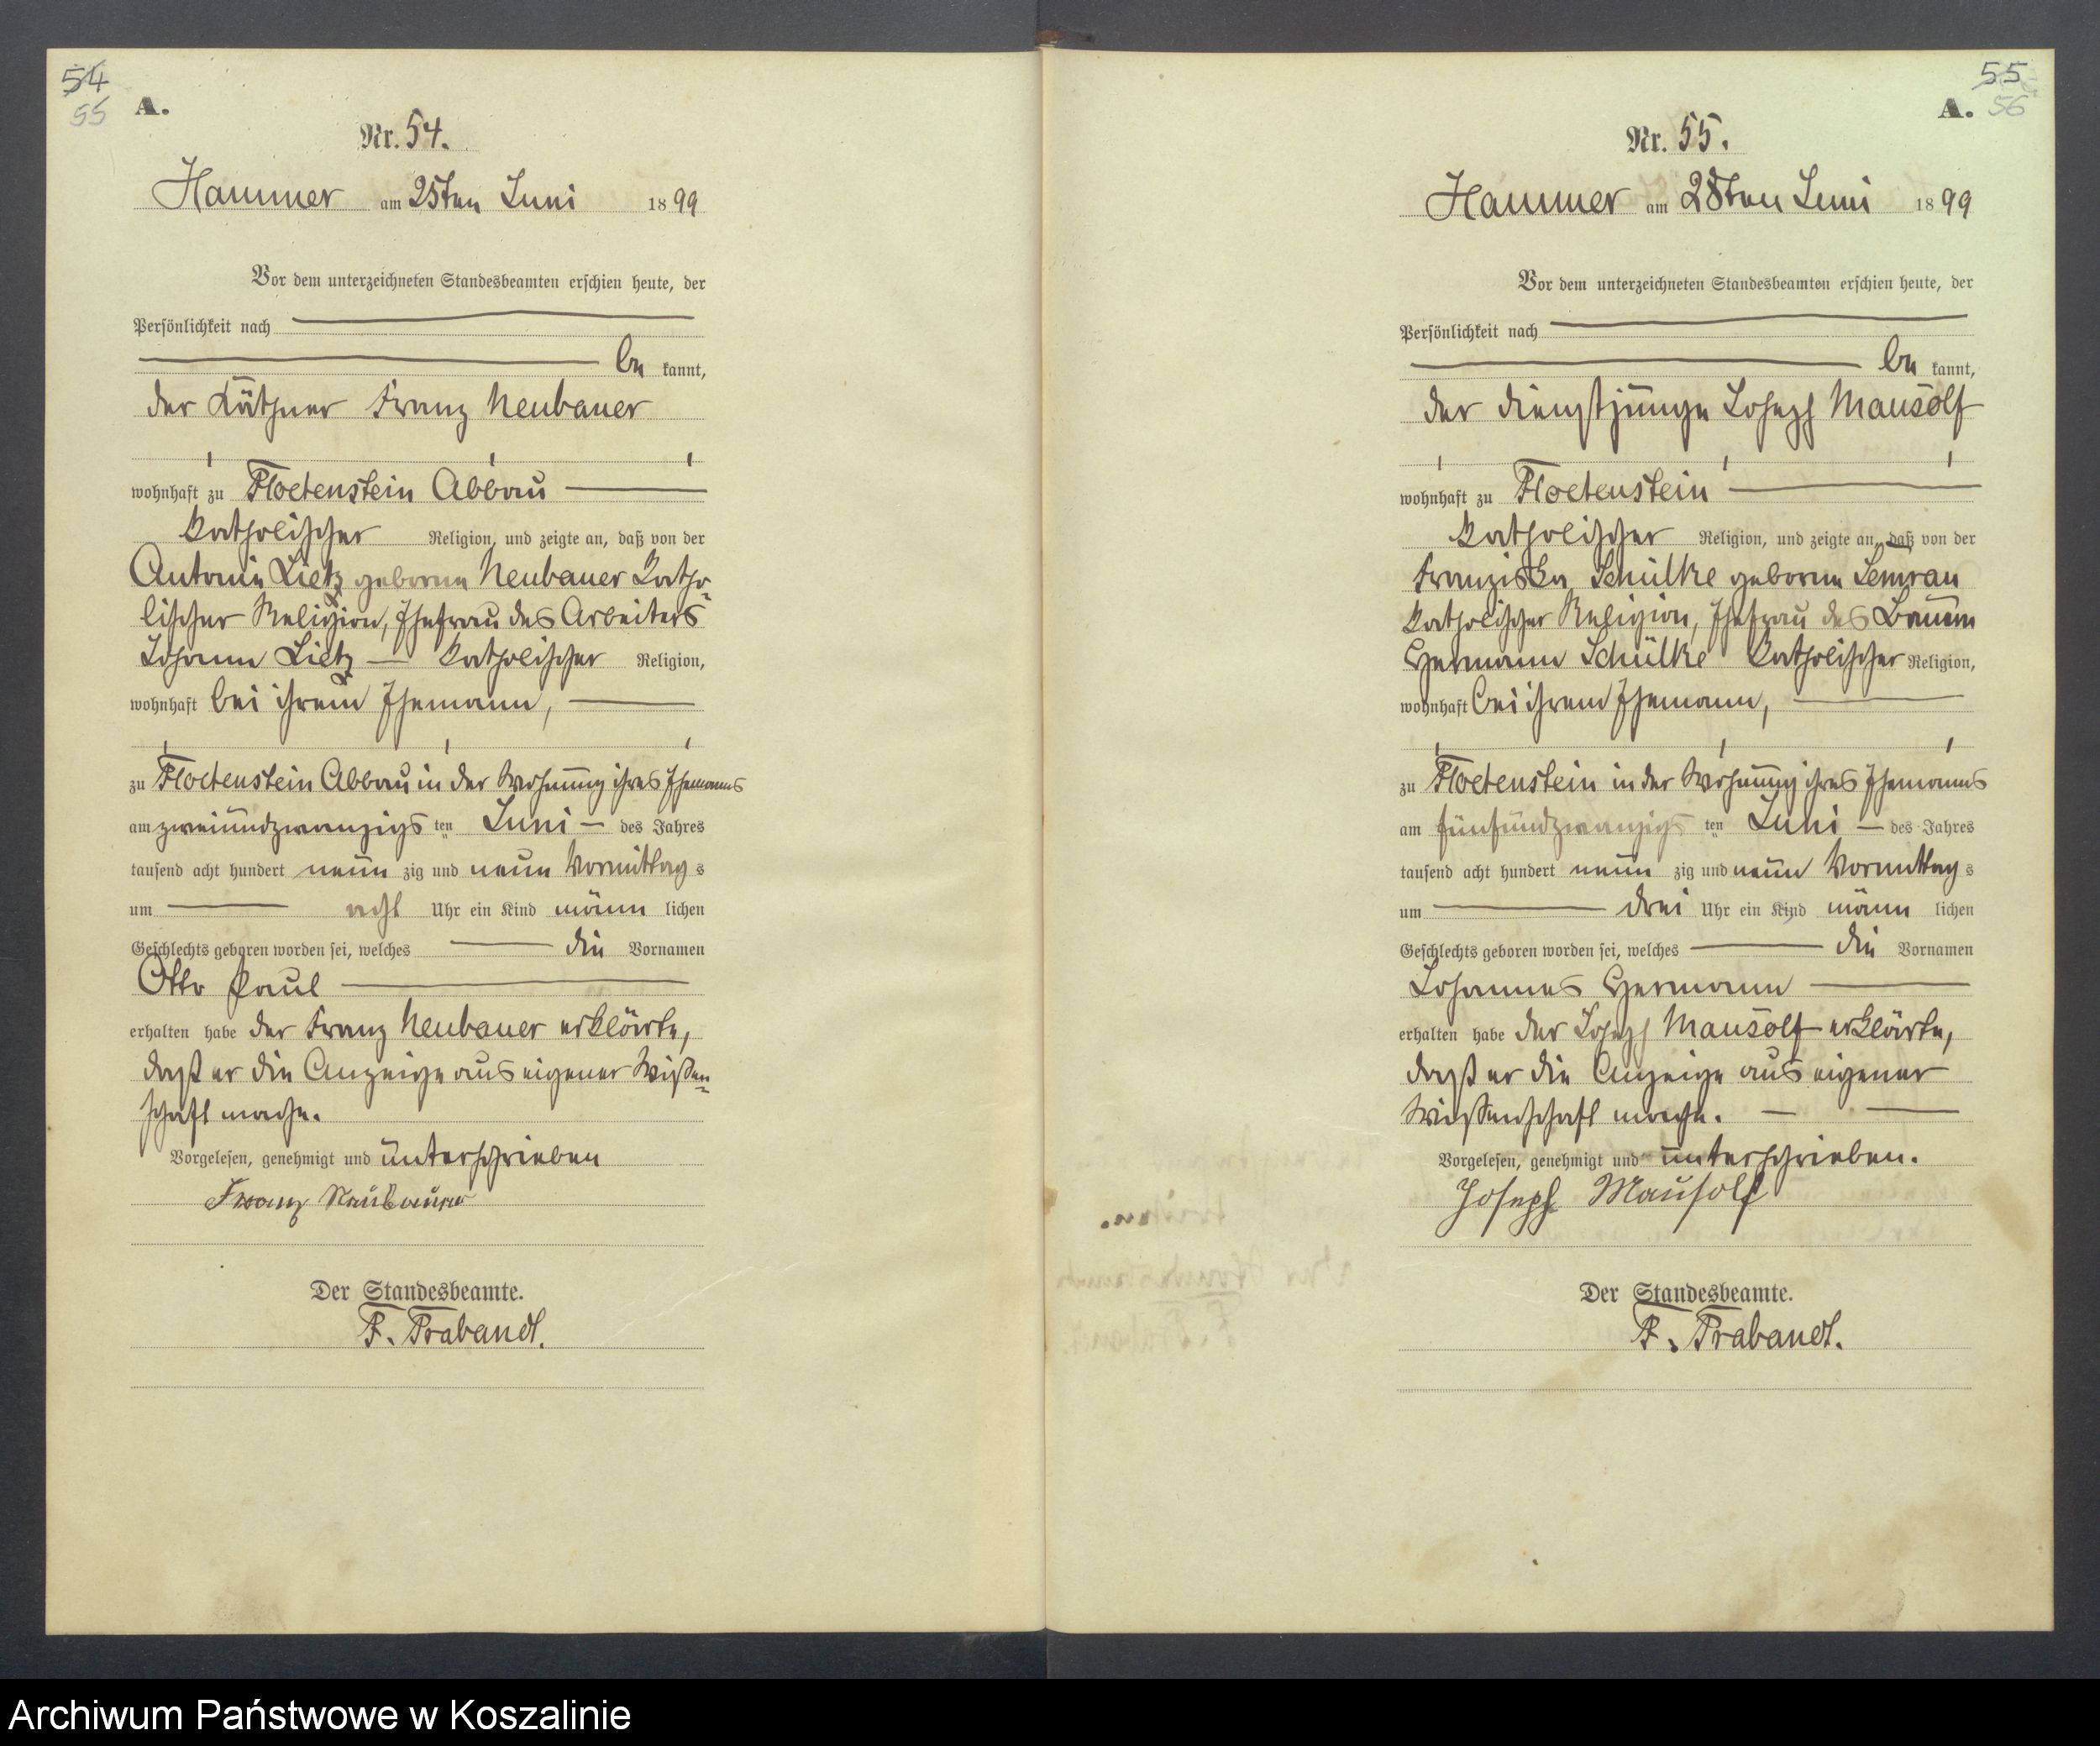 54
55
A.
Nr. 54.
Hammer am 25ten Juni 1899
Vor dem unterzeichneten Standesbeamten erschien heute, der
Persönlichkeit nach
be kannt,
der Käthner Franz Neubauer
wohnhaft zu Floetenstein Abbau
katholischer Religion, und zeigte an, daß von der
Antonie Lietz geborne Neubauer katho-
lischer Religion, Ehefrau des Arbeiters
Johann Lietz — katholischer Religion,
wohnhaft bei ihrem Ehemann,
zu Floetenstein Abbau in der Wohnung ihres Ehemanns
am zweiundzwanzigs ten Juni — des Jahres
tausend acht hundert neun zig und neun Vormittag s
um acht Uhr ein Kind männ lichen
Geschlechts geboren worden sei, welches die Vornamen
Otto Paul
erhalten habe der Franz Neubauer erklärte,
daß er die Anzeige aus eigener Wißen-
schaft mache.
Vorgelesen, genehmigt und unterschrieben
Franz Neubauer
Der Standesbeamte.
F. Trabandt.
55
56
A.
Nr. 55.
Hammer am 28ten Juni 1899
Vor dem unterzeichneten Standesbeamten erschien heute, der
Persönlichkeit nach
be kannt,
der Dienstjunge Joseph Mausolf
wohnhaft zu Floetenstein
katholischer Religion, und zeigte an, daß von der
Franziska Schülke geborne Semrau
katholischer Religion, Ehefrau des Bauern
Hermann Schülke katholischer Religion,
wohnhaft bei ihrem Ehemann,
zu Floetenstein in der Wohnung ihres Ehemanns
am fünfundzwanzigs ten Juni — des Jahres
tausend acht hundert neun zig und neun Vormittag s
um drei Uhr ein Kind männ lichen
Geschlechts geboren worden sei, welches die Vornamen
Johannes Hermann
erhalten habe der Joseph Mausolf erklärte,
daß er die Anzeige aus eigener
Wißenschaft mache.
Vorgelesen, genehmigt und unterschrieben.
Joseph Mausolf
Der Standesbeamte.
F. Trabandt.
Archiwum Państwowe w Koszalinie